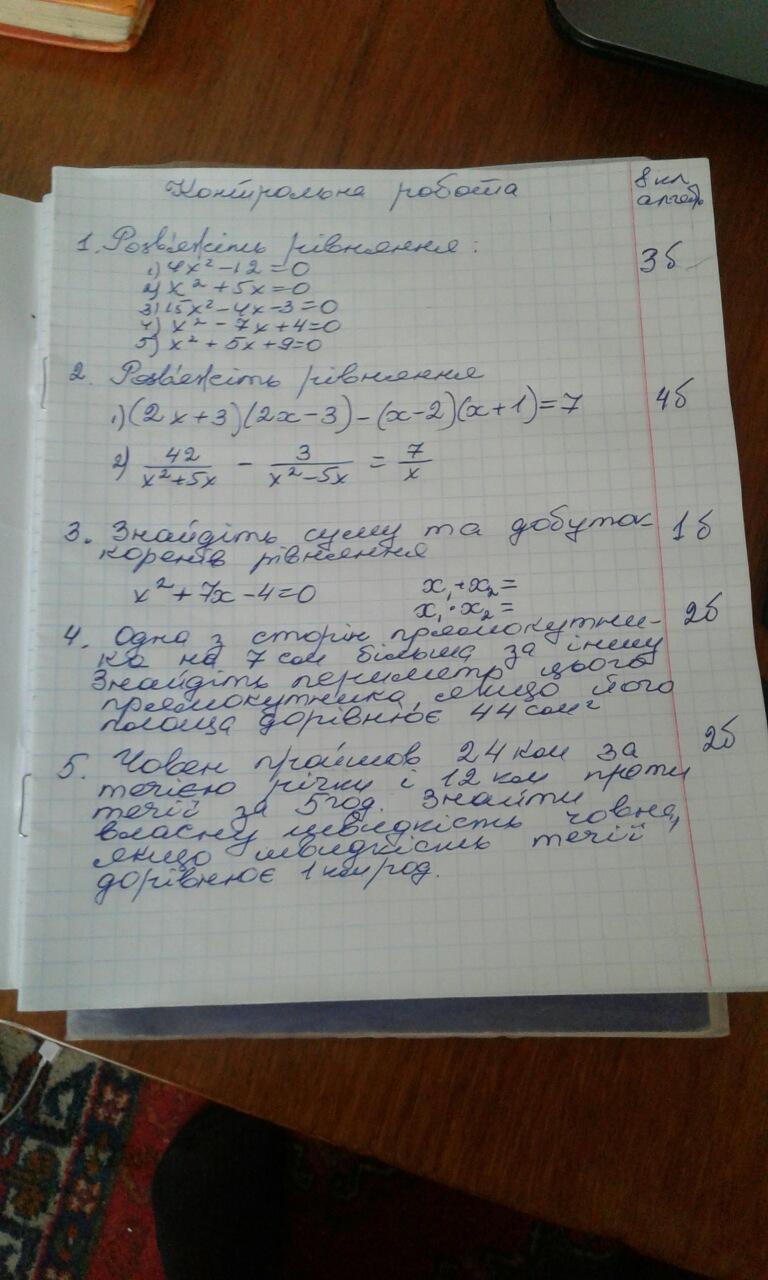 Контрольна робота
8 кл
алгебр
1. Розв'яжіть рівняння:
3б
1) 4x² - 12 = 0
2) x² + 5x = 0
3) 15x² - 4x - 3 = 0
4) x² - 7x + 4 = 0
5) x² + 5x + 9 = 0
2. Розв'яжіть рівняння
4б
1) (2x+3)(2x-3) - (x-2)(x+1) = 7
2) 42/(x²+5x) - 3/(x²-5x) = 7/x
3. Знайдіть суму та добуток
1б
коренів рівняння
x² + 7x - 4 = 0 x₁ + x₂ =
x₁ · x₂ =
4. Одна з сторін прямокутни-
2б
ка на 7 см більша за іншу
Знайдіть периметр цього
прямокутника, якщо його
площа дорівнює 44 см²
5. Човен пройшов 24 км за
2б
течією річки і 12 км проти
течії за 5 год. Знайти
власну швидкість човна,
якщо швидкість течії
дорівнює 1 км/год.